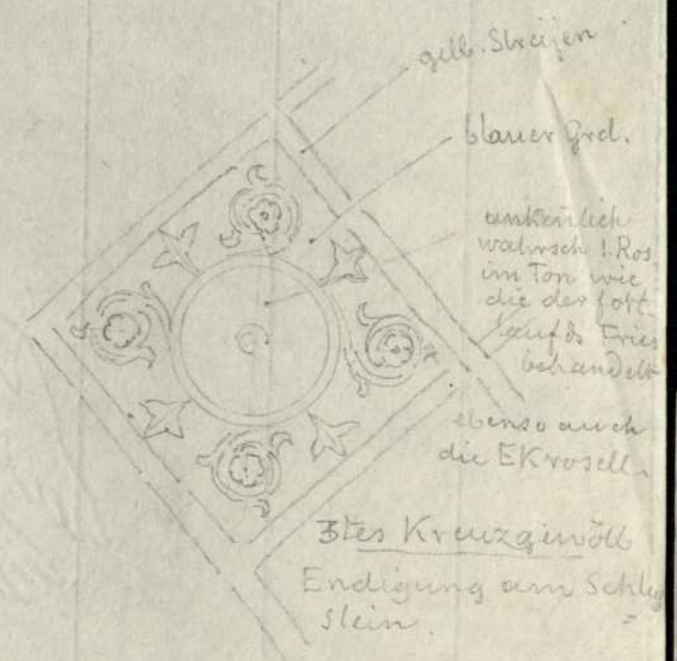 gelb. Streifen
blauer Grd.
unkenntlich
wahrsch 1. Ros.
im Ton wie
die der
auf ds Fries
behandelt
ebenso auch
die EKrosett.
3tes Kreuzgewölb
Endigung am Schluß
=
stein.